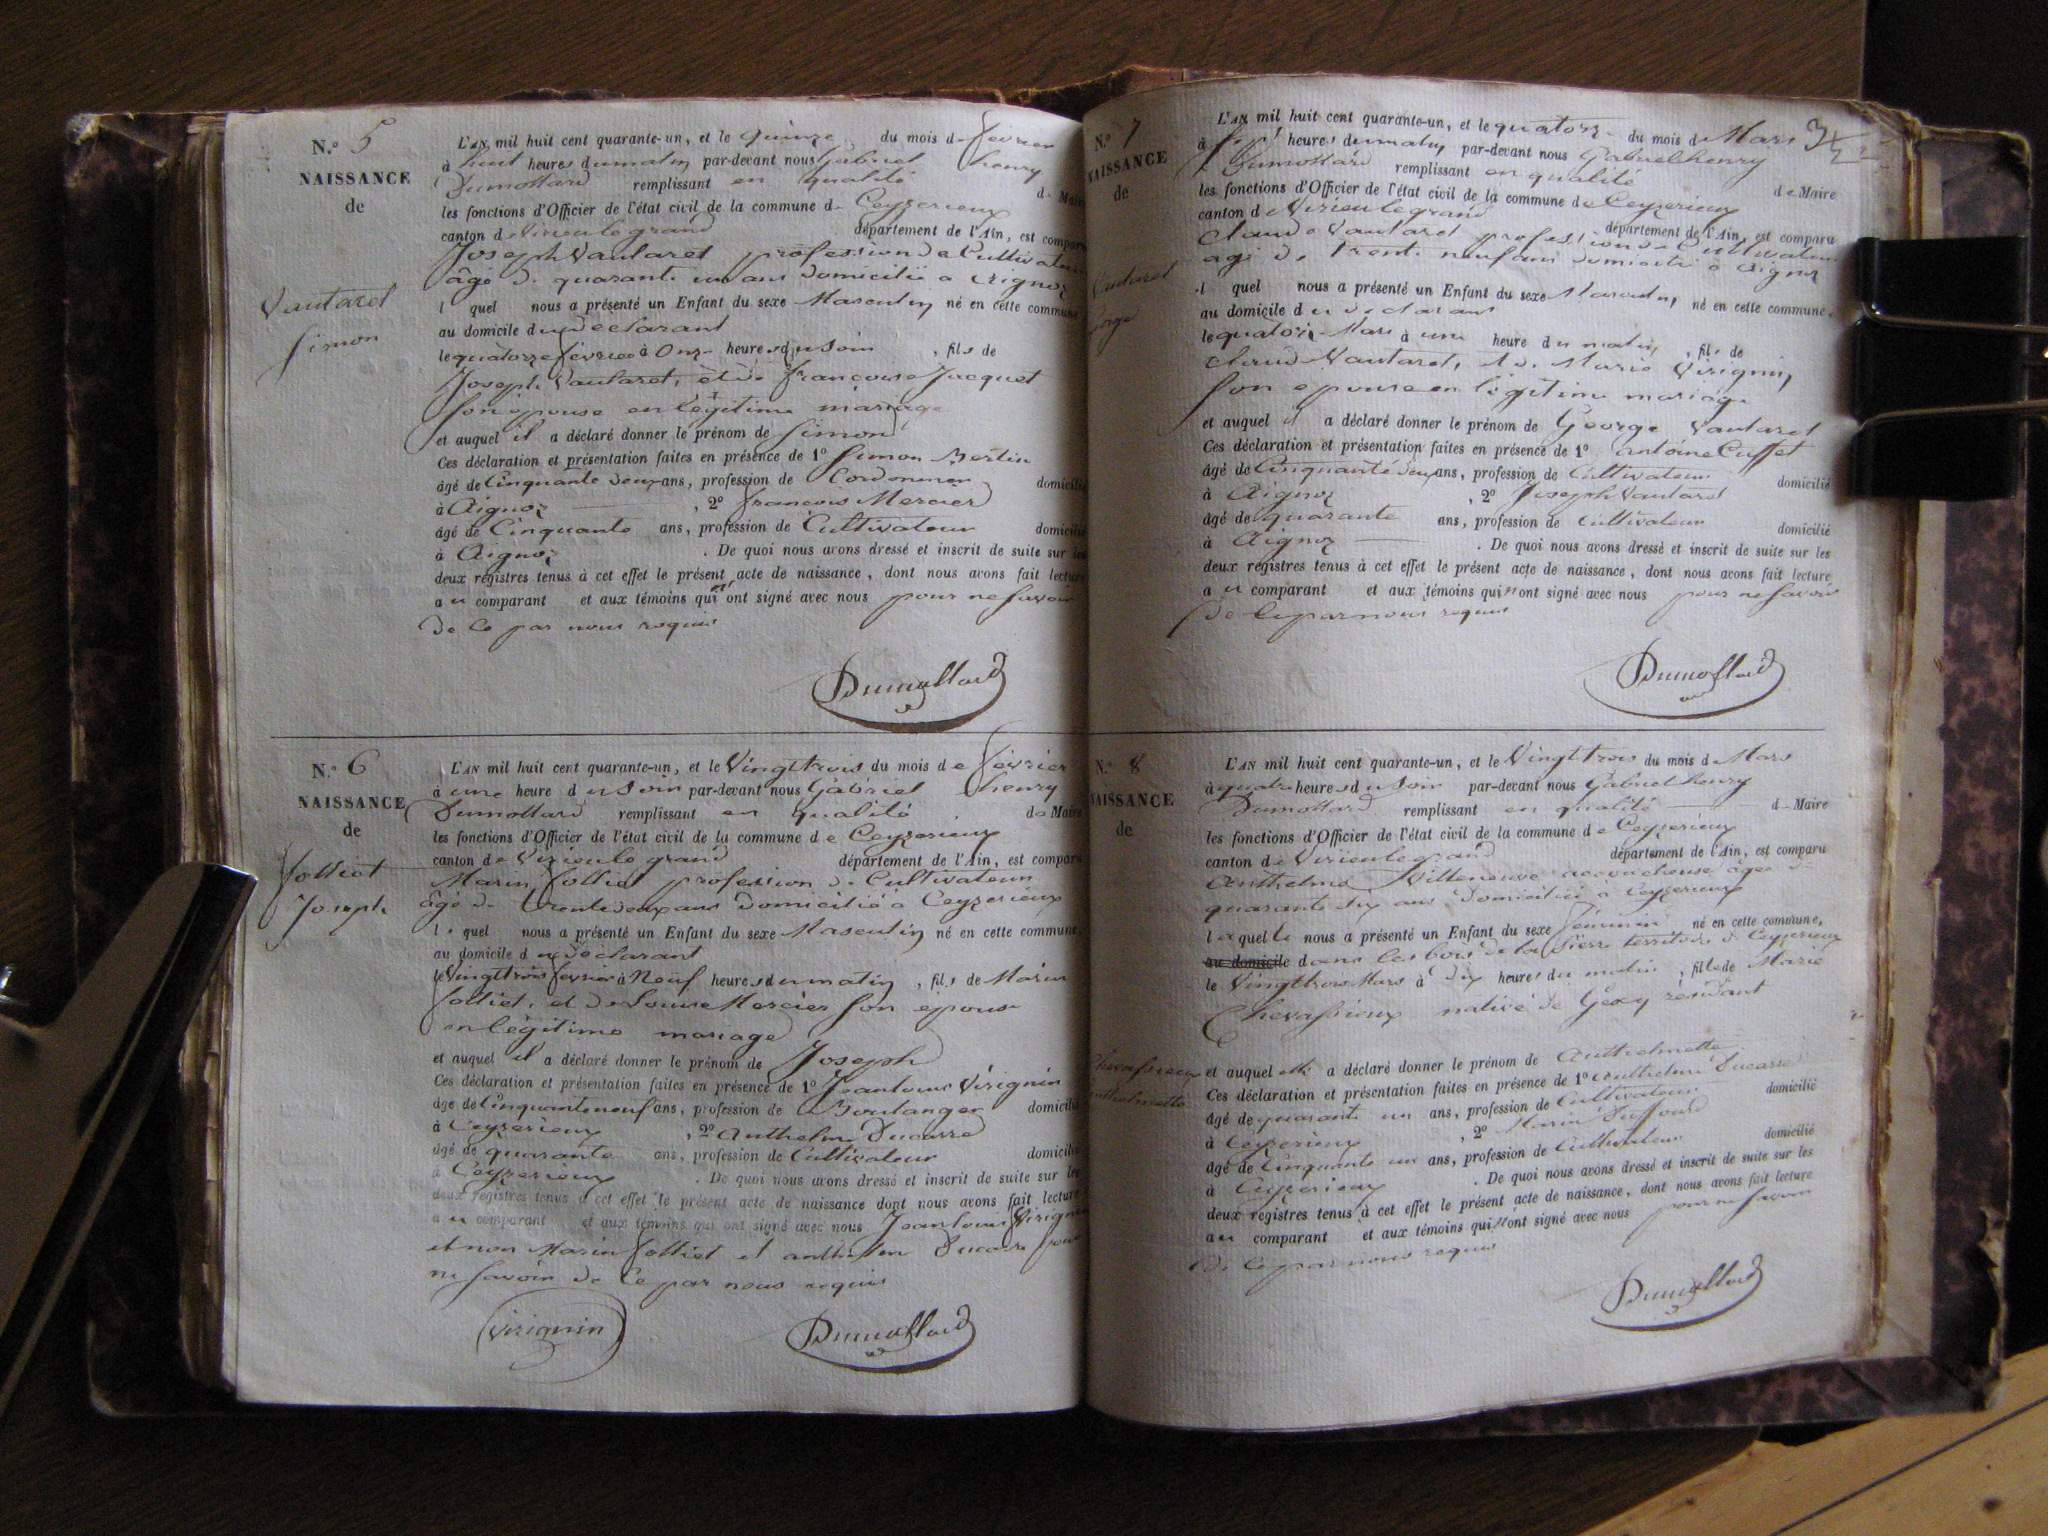 N.° 5
NAISSANCE
de
Vautaret
Simon
L'AN mil huit cent quarante-un, et le quinze du mois de février
à huit heures du matin par-devant nous Gabriel henry
Dumollard remplissant en qualité de Maire
les fonctions d'Officier de l'état civil de la commune de Ceyzerieux
canton de Virieu le grand département de l'Ain, est comparu
Joseph Vautaret profession de Cultivateur
âgé de quarante un ans domicilié a Aignoz
l quel nous a présenté un Enfant du sexe Masculin né en cette commune
au domicile du déclarant
le quatorze février à Onze heures du soir , fils de
Joseph Vautaret, et de françoise Jacquet
son épouse en légitime mariage
et auquel il a déclaré donner le prénom de Simon
Ces déclaration et présentation faites en présence de 1° Simon Bertin
âgé de Cinquante deux ans, profession de Cordonnier domicilié
à Aignoz , 2° françois Mercier
âgé de Cinquante ans, profession de Cultivateur domicilié
à Aignoz . De quoi nous avons dressé et inscrit de suite sur les
deux registres tenus à cet effet le présent acte de naissance, dont nous avons fait lecture
au comparant et aux témoins qui n'ont signé avec nous pour ne savoir
de ce par nous requis
Dumollard
N.° 6
NAISSANCE
de
folliet
Joseph
L'AN mil huit cent quarante-un, et le Vingt trois du mois de février
à une heure du soir par-devant nous Gabriel henry
Dumollard remplissant en qualité de Maire
les fonctions d'Officier de l'état civil de la commune de Ceyzerieux
canton de Virieu le grand département de l'Ain, est comparu
Marin folliet profession de Cultivateur
âgé de trente deux ans domicilié a Ceyzerieux
le quel nous a présenté un Enfant du sexe Masculin né en cette commune,
au domicile du déclarant
le Vingt trois fevrier à Neuf heures du matin , fils de Marin
folliet, et de Louise Mercier son epouse
en légitime mariage
et auquel il a déclaré donner le prénom de Joseph
Ces déclaration et présentation faites en présence de 1° Jean louis Virignin
âgé de Cinquante neuf ans, profession de Boulanger domicilié
à Ceyzerieux , 2° Anthelme Ducarre
âgé de quarante ans, profession de Cultivateur domicilié
à Ceyzerieux . De quoi nous avons dressé et inscrit de suite sur les
deux registres tenus à cet effet le présent acte de naissance dont nous avons fait lecture
au comparant et aux témoins qui ont signé avec nous Jean louis Virignin
et non Marin folliet et anthelme Ducarre pour
ne savoir de ce par nous requis
Virignin
Dumollard
N.° 7
NAISSANCE
de
Vautaret
George
L'AN mil huit cent quarante-un, et le quatorze du mois de Mars
à sept heures du matin par-devant nous Gabriel henry
Dumollard remplissant en qualité de Maire
les fonctions d'Officier de l'état civil de la commune de Ceyzerieux
canton de Virieu le grand département de l'Ain, est comparu
Claude Vautaret profession de Cultivateur
agé de trente neuf ans domicilié a Aignoz
l quel nous a présenté un Enfant du sexe Masculin, né en cette commune,
au domicile du déclarant
le quatorze Mars à une heure du matin , fils de
Claude Vautaret, et de Marie Virignin,
son epouse en légitime mariage
et auquel il a déclaré donner le prénom de George Vautaret
Ces déclaration et présentation faites en présence de 1° antoine Cuffet
âgé de Cinquante deux ans, profession de Cultivateur domicilié
à Aignoz , 2° Joseph Vautaret
âgé de quarante ans, profession de Cultivateur domicilié
à Aignoz . De quoi nous avons dressé et inscrit de suite sur les
deux registres tenus à cet effet le présent acte de naissance, dont nous avons fait lecture
au comparant et aux témoins qui n'ont signé avec nous pour ne savoir
de ce par nous requis
Dumollard
N.° 8
NAISSANCE
de
Chevassieux
Anthelmette
L'AN mil huit cent quarante-un, et le Vingt trois du mois de Mars
à quatre heures du soir par-devant nous Gabriel henry
Dumollard remplissant en qualité de Maire
les fonctions d'Officier de l'état civil de la commune de Ceyzerieux
canton de Virieu le grand département de l'Ain, est comparu
Anthelme Villeneuve accoucheuse âgée de
quarante six ans domicilié à Ceyzerieux
la quelle nous a présenté un Enfant du sexe féminin né en cette commune,
au domicile dans les bois de la territoire de Ceyzerieux
le Vingt trois Mars à dix heures du matin , fille de Marie
Chevassieux native de résidant
et auquel elle a déclaré donner le prénom de Anthelmette
Ces déclaration et présentation faites en présence de 1° Anthelme Ducarre
âgé de quarante un ans, profession de Cultivateur domicilié
à Ceyzerieux , 2° Marin Duffourd
âgé de Cinquante un ans, profession de Cultivateur domicilié
à Ceyzerieux . De quoi nous avons dressé et inscrit de suite sur les
deux registres tenus à cet effet le présent acte de naissance, dont nous avons fait lecture
au comparant et aux témoins qui n'ont signé avec nous pour ne savoir
de ce par nous requis
Dumollard